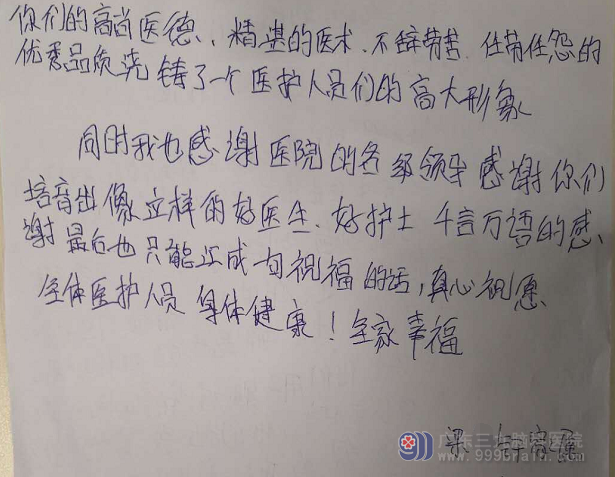 你们的高尚医德、精堪的医术、不辞劳苦、任劳任怨的
优秀品质浇铸了一个医护人员们的高大形象
同时我也感谢医院的各级领导感谢你们
培育出像这样的好医生、好护士 千言万语的感
谢最后也只能汇成句祝福的话,真心祝愿、
全体医护人员 身体健康!全家幸福
梁
广东三九脑科医院
www.999brain.com